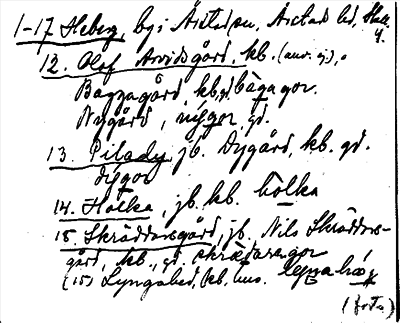 1-17 Heberg, by i Årstad sn, Årstad hd, Hall.
12. Olof Arvidsgård, kb. (anv. ej),
Baggagård, kb, gd. bàgagor.
Nygård, nýgor, gd.
13. Pilady, jb. Dygård, kb. gd.
dýgor
14. Holka, jb. kb. hòlka
15. Skräddaregård, jb. Nils Skräddare-
gård, kb., gd.
(15) Lyngahed, kb. hus.
(forts.)